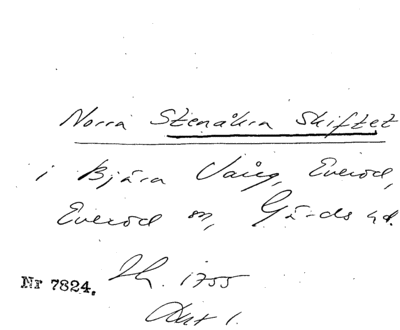 Norra Stenåkra Skiftet
i Bjära Vång, Everöd,
Everöd sn, Gärds hd.
Nr 7824. Sk. 1755
Akt 1.